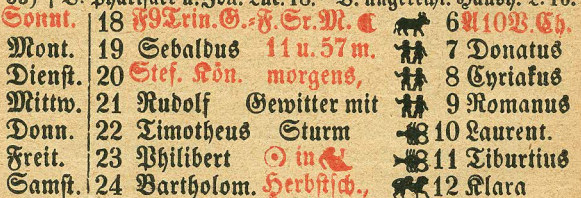 Sonnt. 18 F9Trin.G.=F.Sr.M. ☾ 6 A10V.Ch.
Mont. 19 Sebaldus 11 u. 57 m. 7 Donatus
Dienst. 20 Stef. Kön. morgens, 8 Cyriakus
Mittw. 21 Rudolf Gewitter mit 9 Romanus
Donn. 22 Timotheus Sturm 10 Laurent.
Freit. 23 Philibert ☉ in 11 Tiburtius
Samst. 24 Bartholom. Herbstsch., 12 Klara